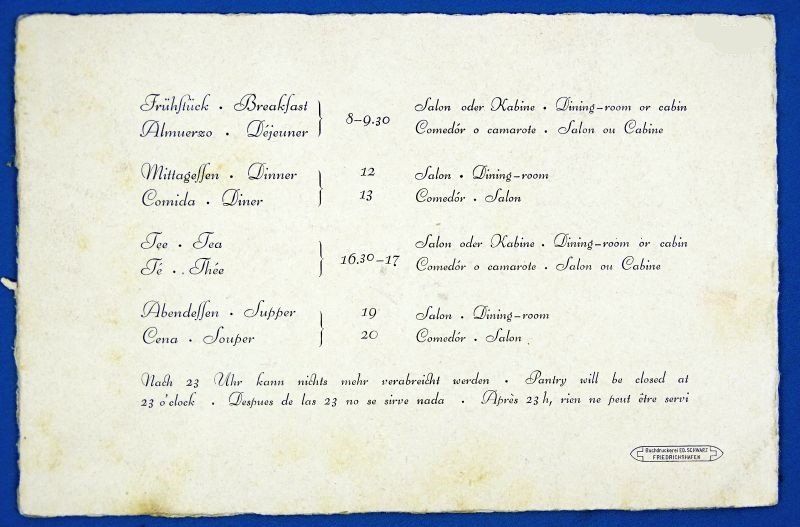 Frühstück • Breakfast } 8–9.30 Salon oder Kabine • Dining-room or cabin
Almuerzo • Déjeuner Comedór o camarote • Salon ou Cabine
Mittagessen • Dinner } 12 Salon • Dining-room
Comida • Diner 13 Comedór • Salon
Tee • Tea } 16.30–17 Salon oder Kabine • Dining-room or cabin
Té • Thée Comedór o camarote • Salon ou Cabine
Abendessen • Supper } 19 Salon • Dining-room
Cena • Souper 20 Comedór • Salon
Nach 23 Uhr kann nichts mehr verabreicht werden • Pantry will be closed at
23 o'clock • Despues de las 23 no se sirve nada • Après 23 h, rien ne peut être servi
Buchdruckerei ED. SCHWARZ
FRIEDRICHSHAFEN